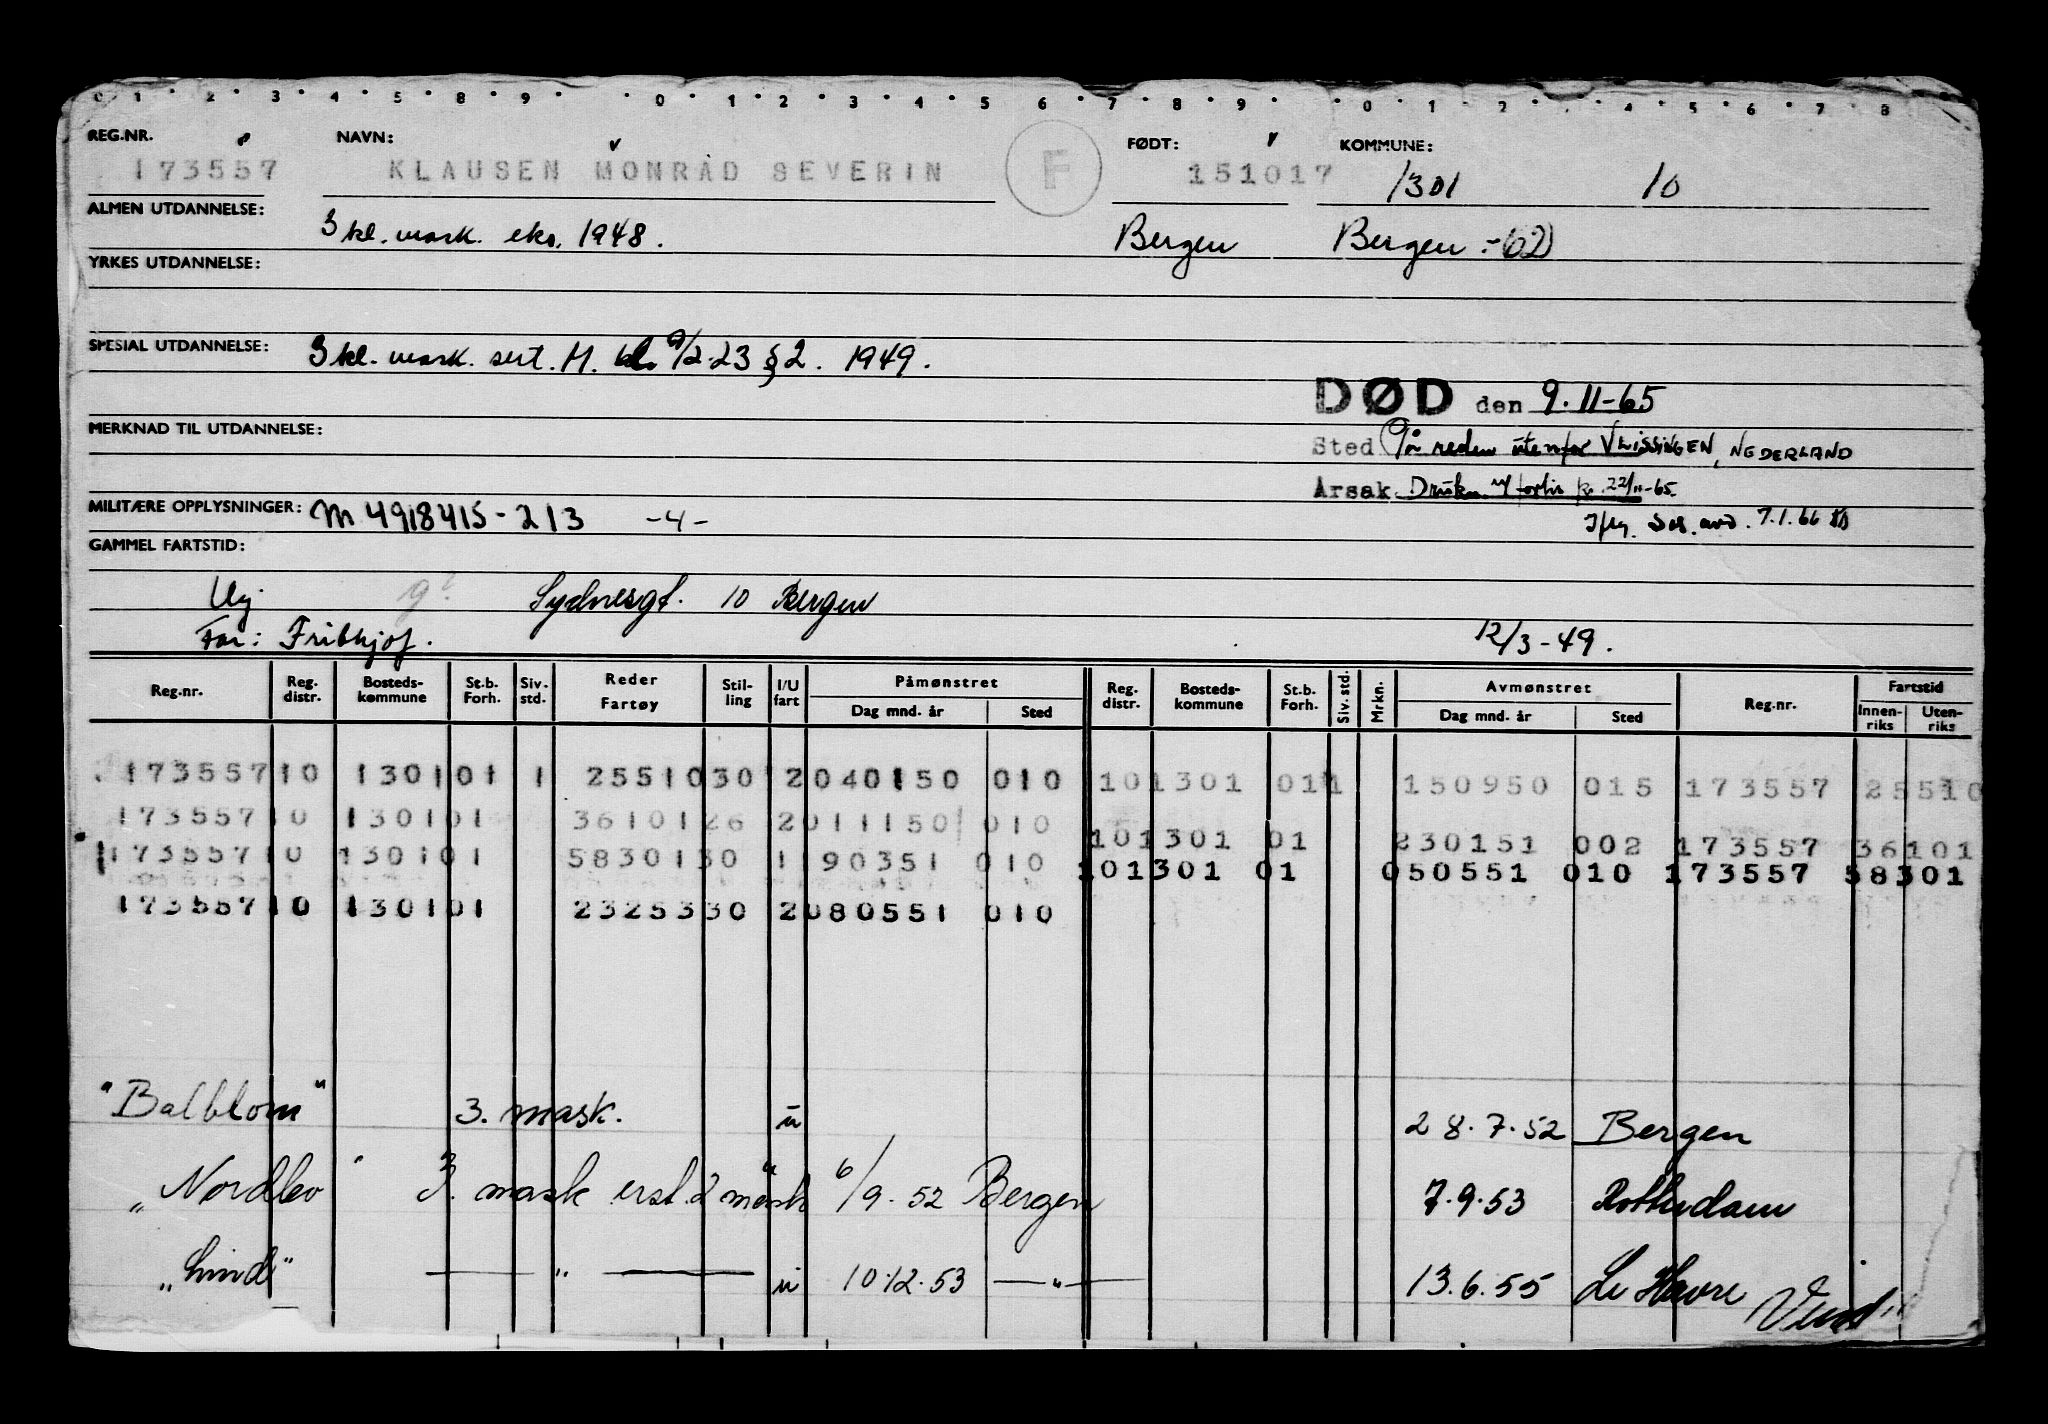 0 1 2 3 4 5 8 9 0 1 2 3 4 5 6 7 8 9 0 1 2 4 5 6 7 8
REG.NR. NAVN: FØDT: KOMMUNE:
173557 KLAUSEN MONRAD SEVERIN F 151017 1301 10
ALMEN UTDANNELSE: 3 kl. mask. eks. 1948. Bergen Bergen -62
YRKES UTDANNELSE:
SPESIAL UTDANNELSE: 3 kl. mask. sert. H. 9/2-23 § 2. 1949.
DØD den 9.11-65
MERKNAD TIL UTDANNELSE:
Sted På reden utenfor VLISSINGEN, NEDERLAND
Årsak Drukn. 22/11-65.
MILITÆRE OPPLYSNINGER: M 4918415-213 -4-
7.1.66
GAMMEL FARTSTID:
Ug. Sydnesgt. 10 Bergen
Far: Frithjof. 12/3-49.
Reg.nr. Reg. distr. Bosteds- kommune St.b. Forh. Siv. std. Reder Fartøy Stil- ling I/U fart Påmønstret Dag mnd. år Sted Reg. distr. Bosteds- kommune St.b. Forh. Siv. std. Mrkn. Avmønstret Dag mnd. år Sted Reg.nr. Fartstid Innen- riks Uten- riks
173557 10 1301 01 1 25510 30 2 040150 010 10 1301 01 1 150950 015 173557 25510
173557 10 1301 01 36101 26 2 011150 010 10 1301 01 230151 002 173557 36101
173557 10 1301 01 58301 30 1 190351 010 10 1301 01 050551 010 173557 58301
173557 10 1301 01 23253 30 2 080551 010
"Balblom" 3. mask. u 28.7.52 Bergen
"Nordlev" 3. mask erst. 2 mask 6/9-52 Bergen 7.9.53 Rotterdam
"Lind" — " — u 10.12.53 — " — 13.6.55 Le Havre Vend